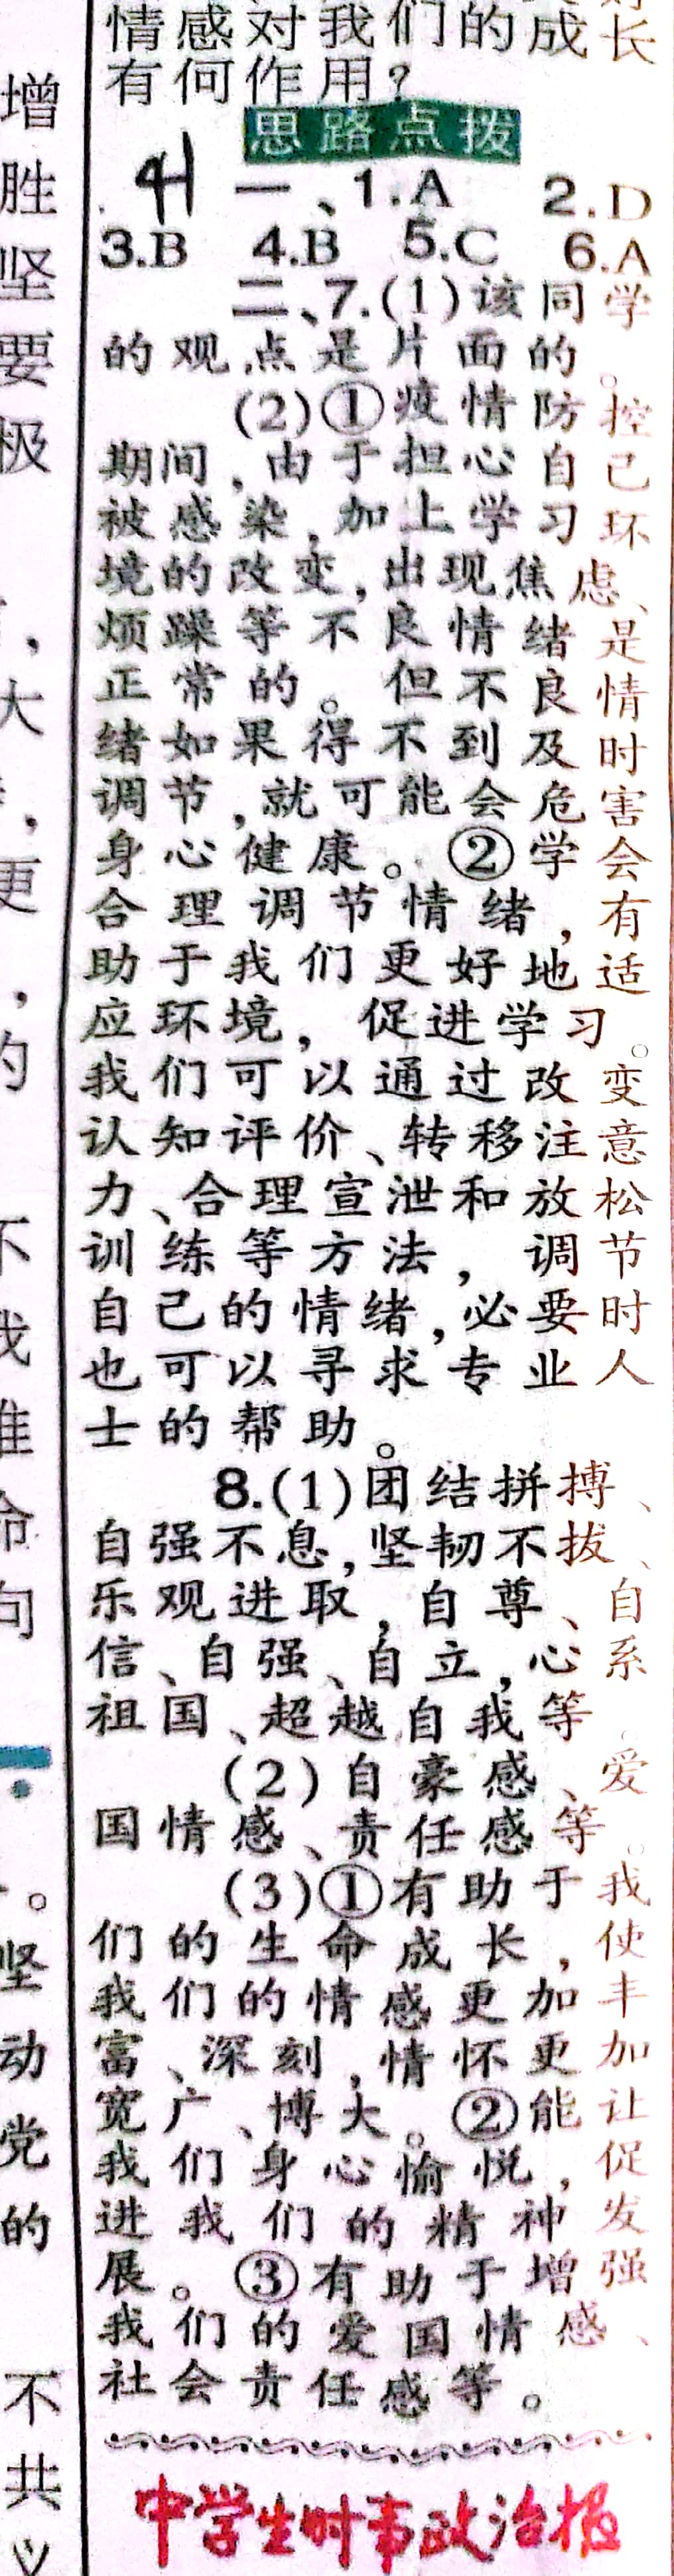 情感对我们的成长
有何作用？
思路点拨
41 一、1.A 2.D
3.B 4.B 5.C 6.A
二、7.(1)该同学
的观点是片面的。
(2)①疫情防控
期间，由于担心自己
被感染，加上学习环
境的改变，出现焦虑、
烦躁等不良情绪是
正常的。但不良情
绪如果得不到及时
调节，就可能会危害
身心健康。②学会
合理调节情绪，有
助于我们更好地适
应环境，促进学习。
我们可以通过改变
认知评价、转移注意
力、合理宣泄和放松
训练等方法，调节
自己的情绪，必要时
也可以寻求专业人
士的帮助。
8.(1)团结拼搏、
自强不息，坚韧不拔、
乐观进取，自尊、自
信、自强、自立，心系
祖国、超越自我等。
(2)自豪感、爱
国情感、责任感等。
(3)①有助于我
们的生命成长，使
我们的情感更加丰
富、深刻，情怀更加
宽广、博大。②能让
我们身心愉悦，促
进我们的精神发
展。③有助于增强
我们的爱国情感、
社会责任感等。
中学生时事政治报
增
胜
坚
要
极
，
大
，
更
，
的
不
我
准
命
句
。
坚
动
党
的
不
共
义